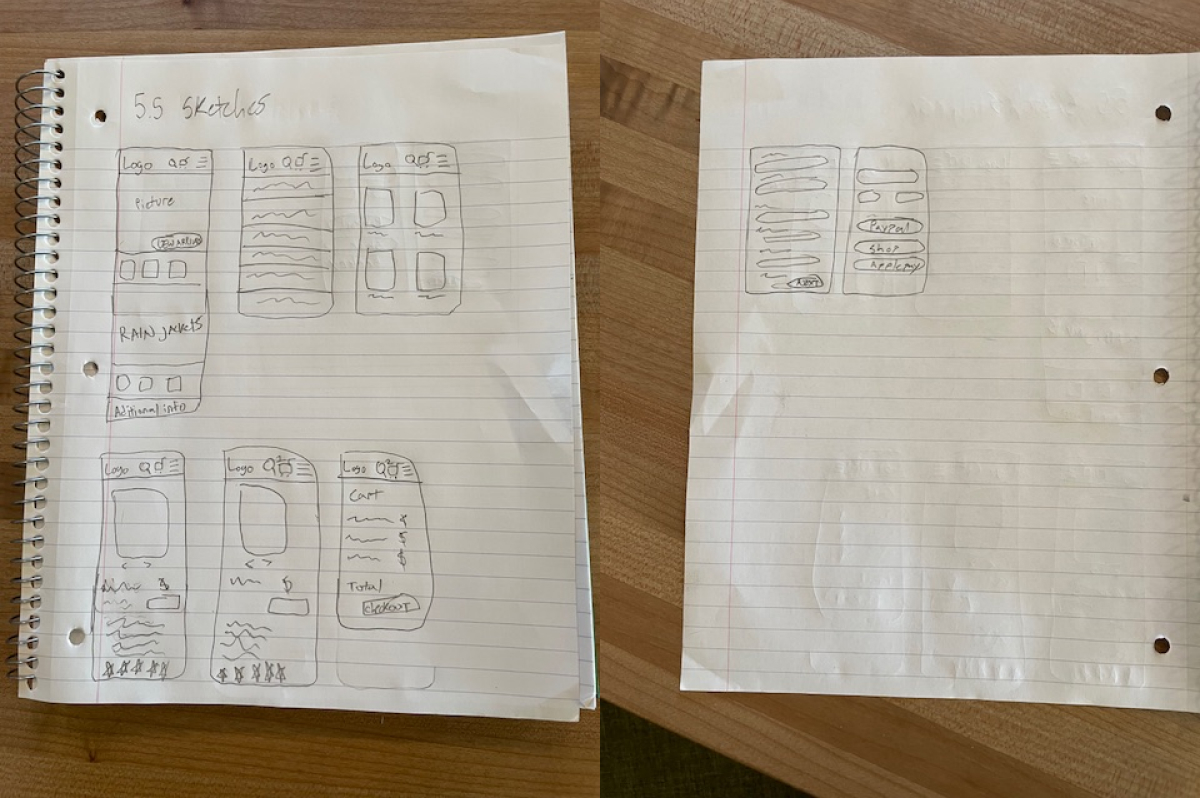 5.5 Sketches
Logo
Picture
RAIN jackets
Aditional info
Logo
Logo
Logo
$
Logo
$
Logo
Cart
$
$
Total
checkout
NEXT
PayPal
Shop
Applepay